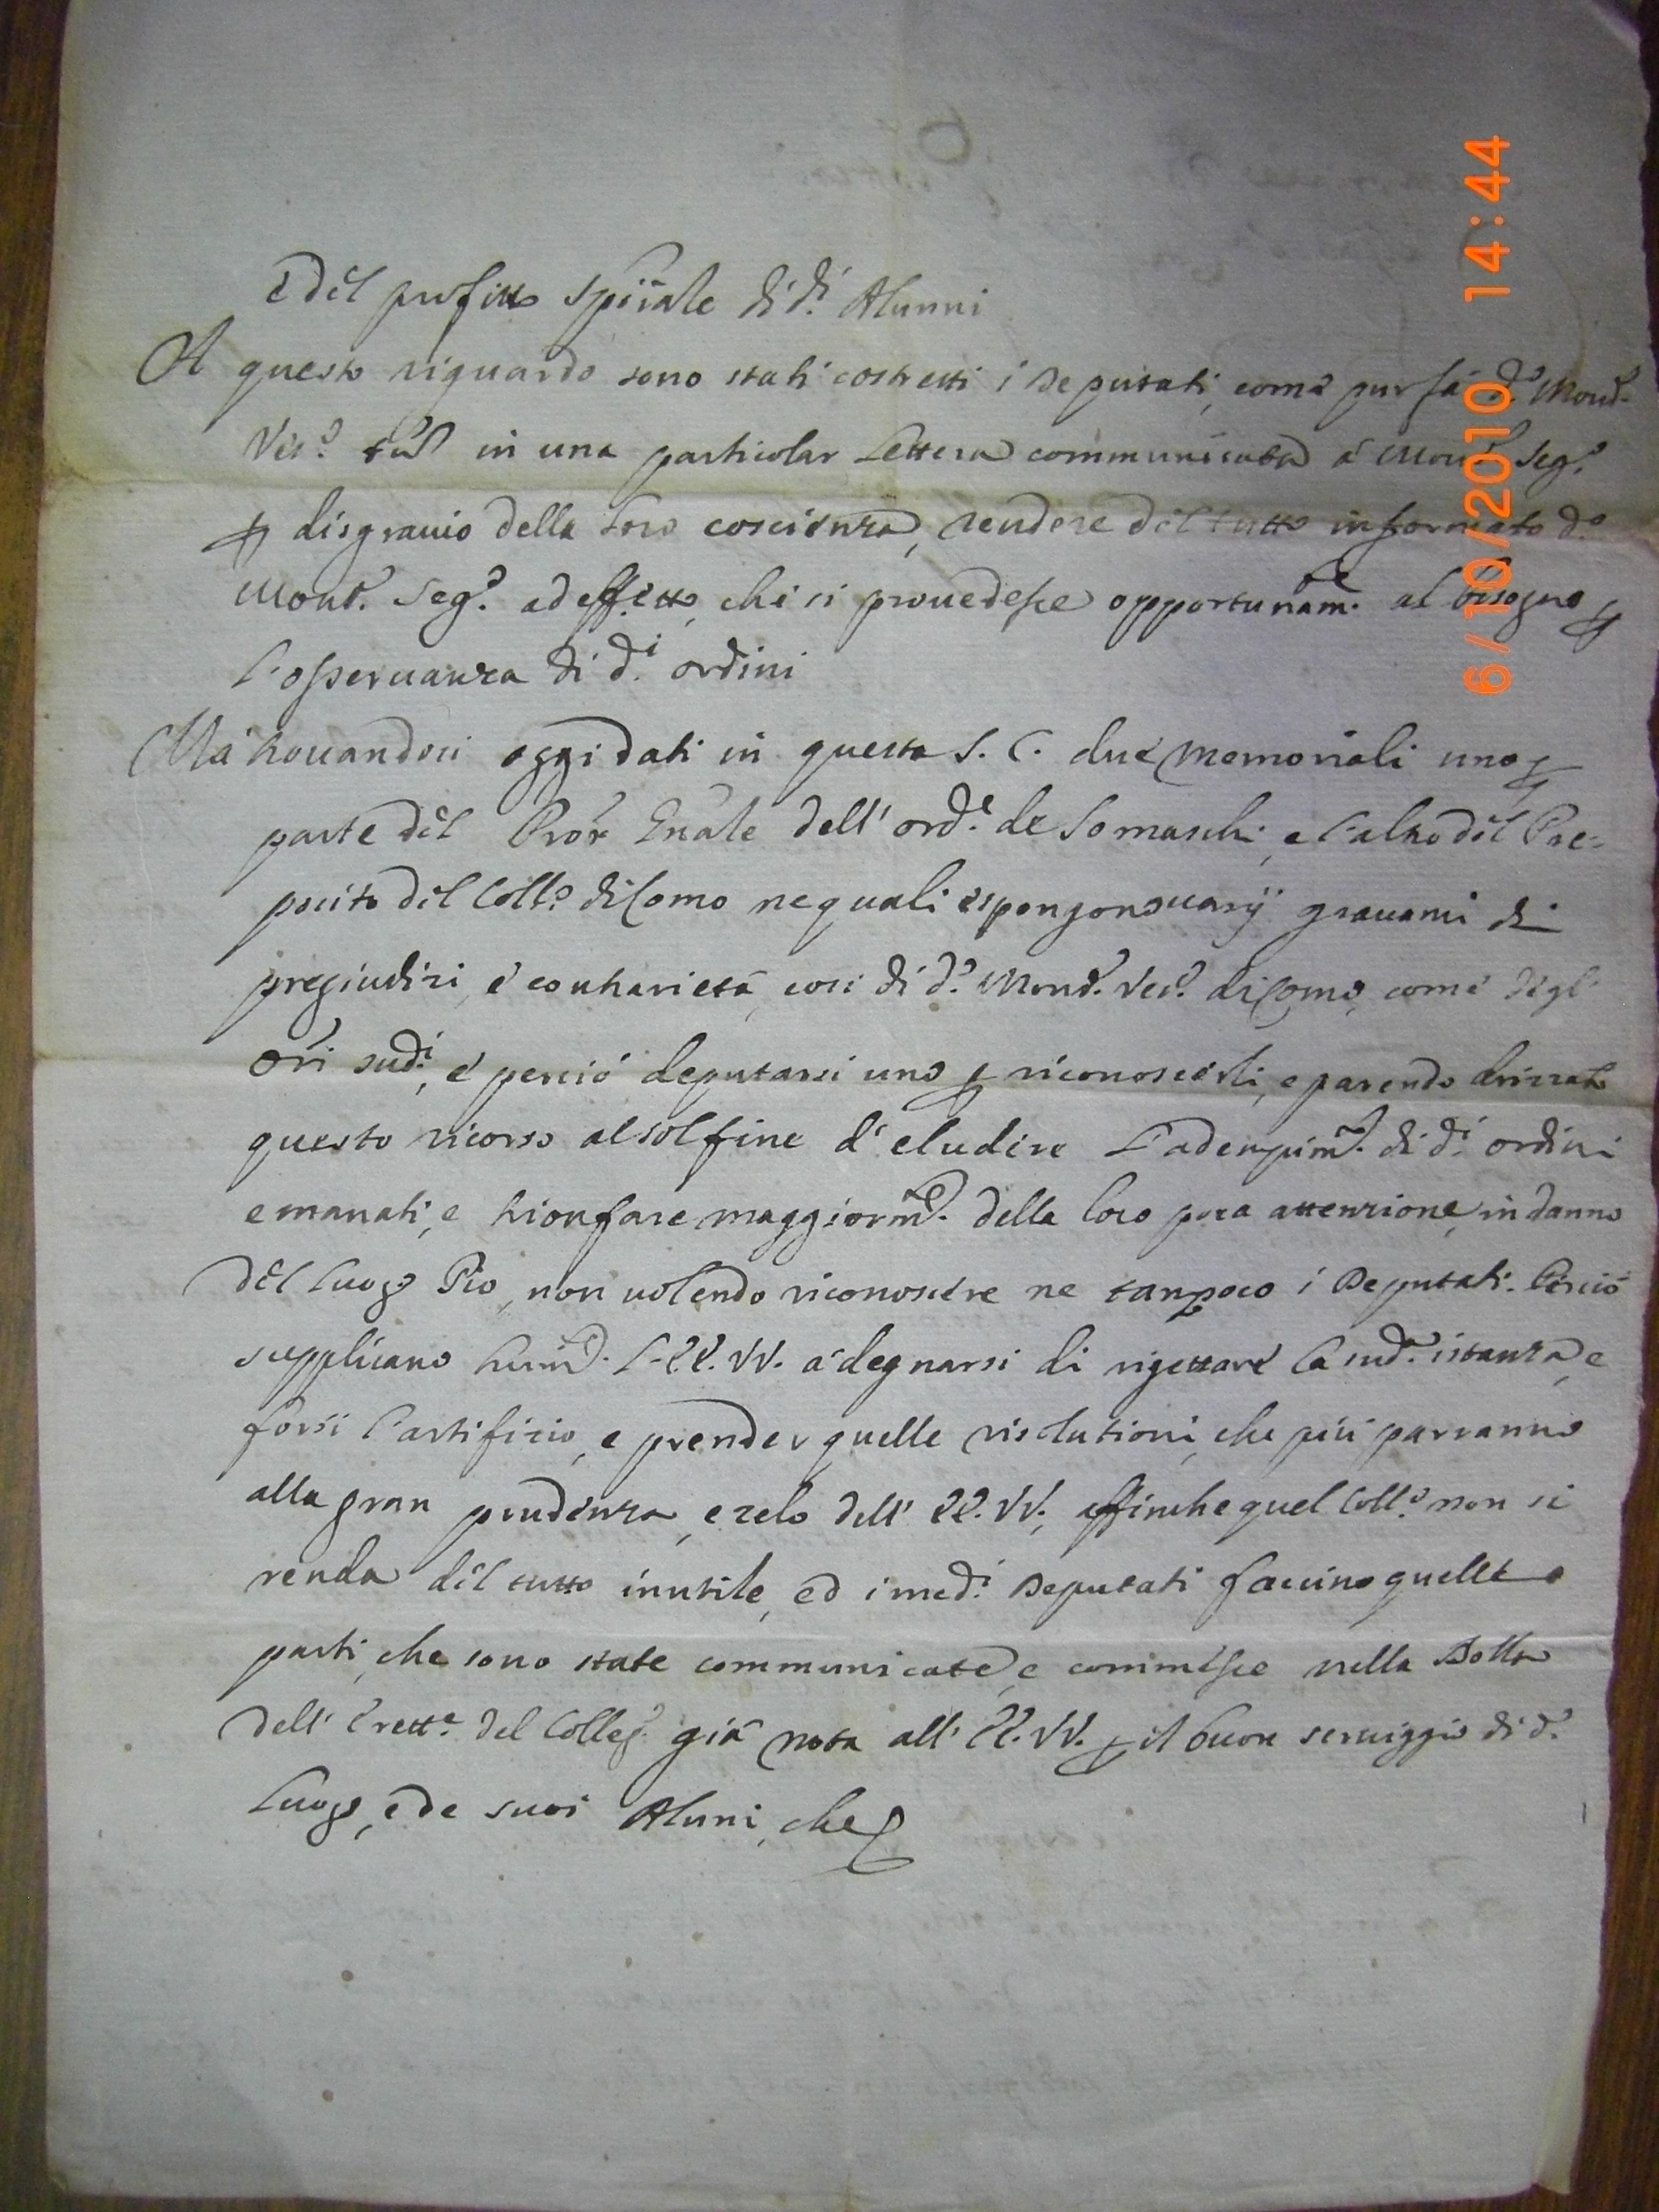 e del profitto spũale di d.i Alunni
A questo riguardo sono stati costretti i Deputati, come pur fà d.o Mons.r
Ves.o in una particolar Lettera communicata à Mons.r Seg.o
p disgrauio della loro coscienza, rendere del tutto informato d.o
Mons.r Seg.o ad effetto, che si prouedesse opportunam.te al bisogno p
l'osseruanza di d.i ordini
Mà trouandosi oggi dati in questa S. C. due Memoriali uno p
parte del Pror Gnãle dell' ord.e de Somaschi, e l'altro del Pre-
posito del Coll.o di Como ne quali espongono uarij grauami di
pregiudizi, e contrarietà, così di d.o Mons.r Ves.o di Como, come degl'
Ori sud.i, e perciò deputarsi uno p riconoscerli, e parendo drizzato
questo ricorso al sol fine d' eludere l'adempim.to di d.i ordini
emanati, e trionfare maggiorm.te della loro poca attenzione, in danno
del luogo Pio, non uolendo riconoscere ne tanpoco i Deputati. Perciò
supplicano humil.te l'EE. VV. a degnarsi di rigettare la sud.a istanza, e
forsi l'artifizio, e prender quelle risolutioni, che più parranno
alla gran prudenza, e zelo dell' EE. VV., affinche quel Coll.o non si
renda del tutto inutile, ed i med.i Deputati faccino quelle
parti, che sono state communicate, e commesse nella Bolla
dell' Erett.e del Colleg.o già nota all' EE. VV. p il buon seruiggio di d.o
Luogo, e de suoi Aluni, che
6/10/2010 14:44